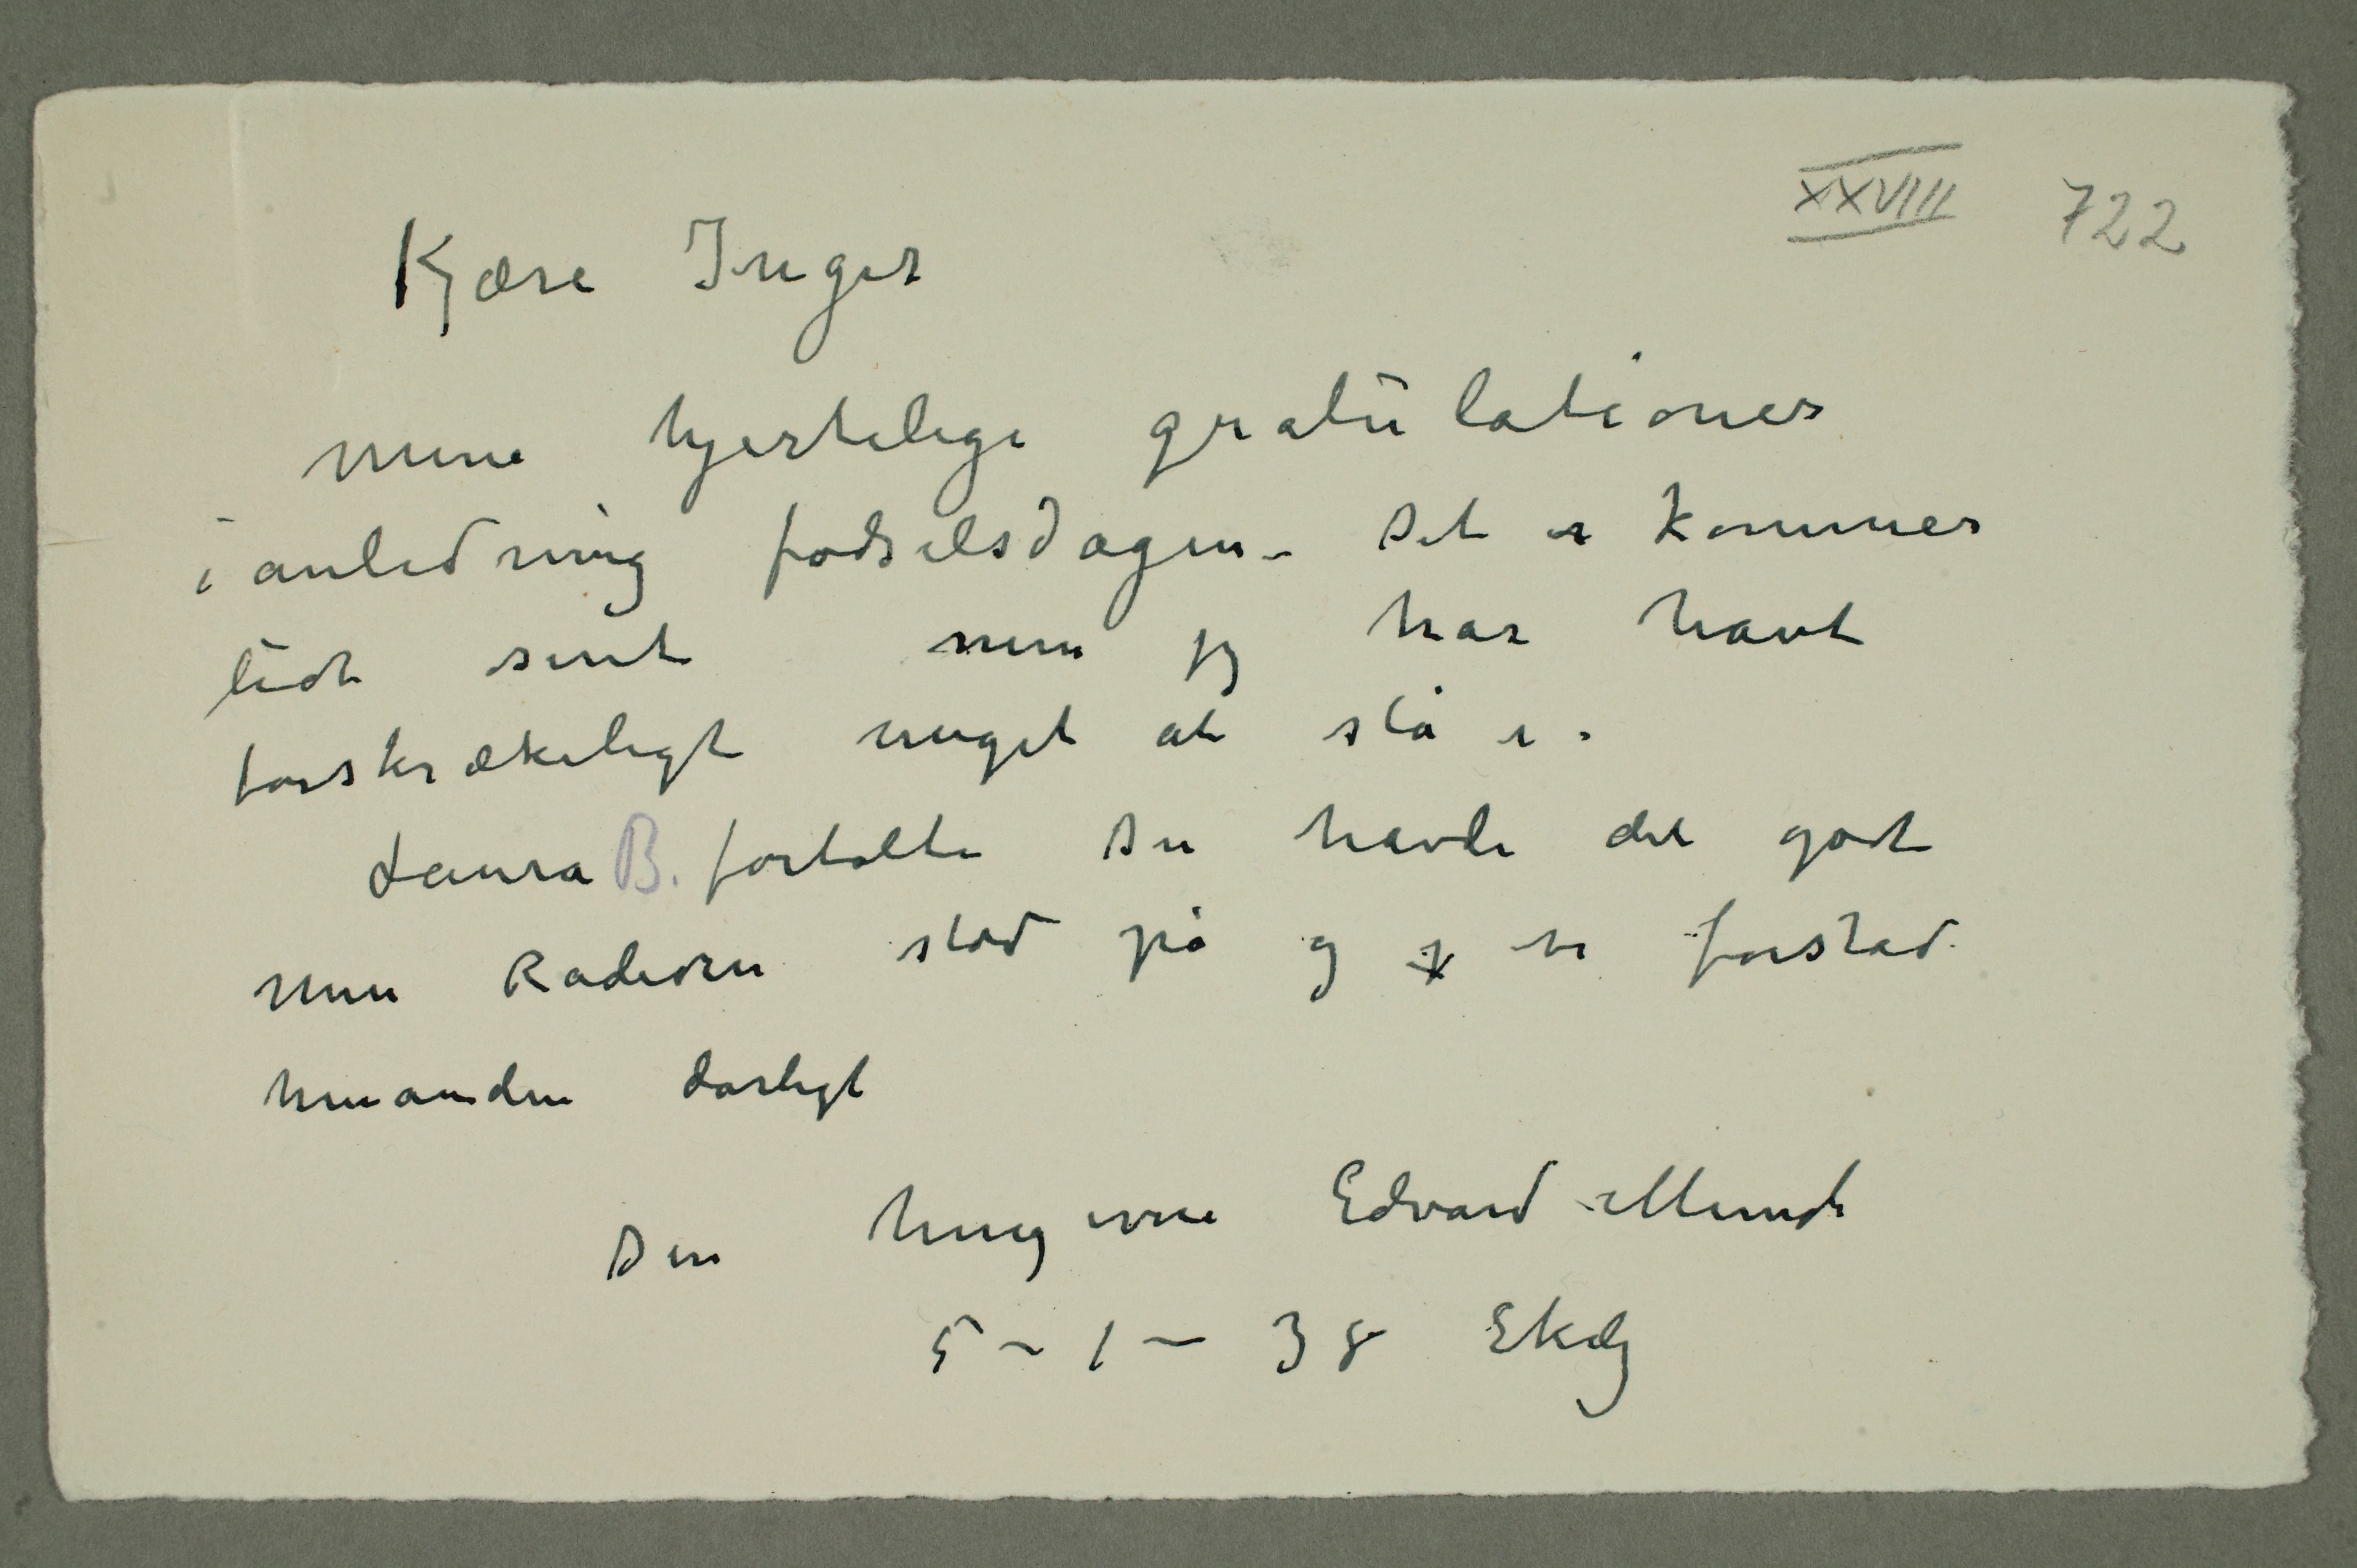 XXVIII 722
Kjære Inger
Mine hjertelige gratulationer
i anledning fødselsdagen – Det kommer
lidt sent men jeg har havt
forskrækeligt meget at stå i.
Laura B. fortalte Du havde det godt
men Radioen stod på og vi forstod
hinanden dårligt
Din hengivne Edvard Munch
5 – 1 – 38 Ekely